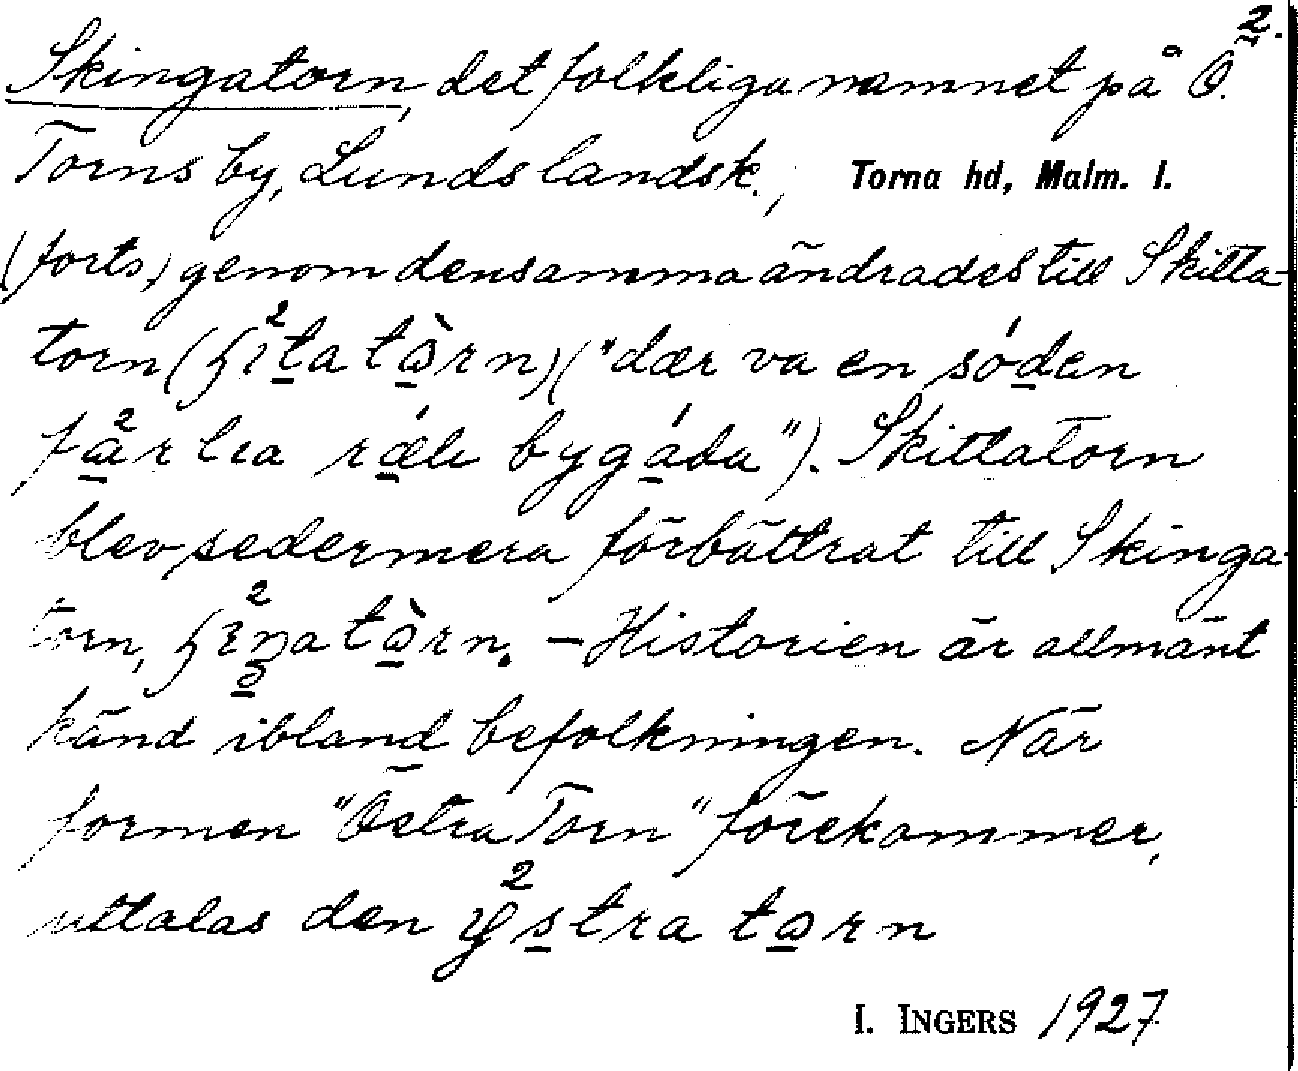 2.
Skingatorn, det folkliga namnet på Ö.
Torns by, Lunds landsk., Torna hd, Malm. l.
(forts.) genom densamma ändrades till Skitta-
torn ( ) ("dær va en sóden
bygáda"). Skittatorn
blev sedermera förbättrat till Skinga-
torn, . — Historien är allmänt
känd ibland befolkningen. När
formen "Östra Torn" förekommer,
uttalas den
I. INGERS 1927